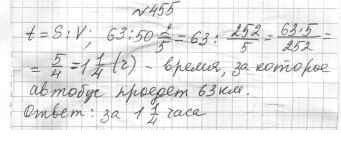 №455
t = S : V; 63 : 50 2/5 = 63 : 252/5 = 63·5/252 =
= 5/4 = 1 1/4 (г) - время, за которое
автобус проедет 63 км.
Ответ: за 1 1/4 часа